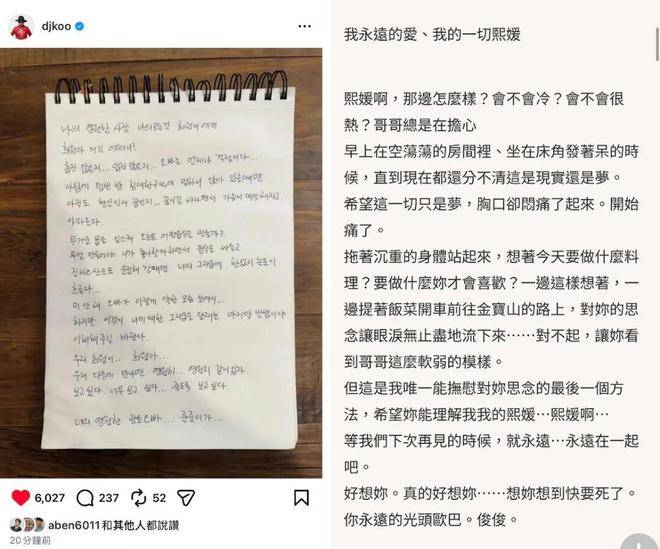 djkoo
나의 영원한 사랑 나의모든것 희원에게
희원아 거긴 어떠니?
춥진 않은지... 덥진 않은지... 오빠는 언제나 걱정이다...
아침에 텅빈 방 침대한구석에 멍하니 앉아 있을때면
아직도 현실인지 꿈인지... 꿈이길 바라면서 가슴이 먹먹해지고
아파온다.
무거운 몸을 일으켜 오늘은 어떤음식을 만들까?
무얼 만들어야 니가 좋아할까하면서 음식을 싸들고
진바오산으로 운전해 갈때면 너의 그리움에 한없이 눈물이
흐른다...
미안해.. 오빠가 이렇게 약한 모습 보여서...
하지만 이것이 너에대한 그리움을 달래는 마지막 방법이야
이해해주길 바란다.
우리 희원이... 희원아...
우리 다음에 만나면 영원히... 영원히 같이있자
보고싶다. 너무 보고 싶다... 죽도록 보고싶다.
너의 영원한 광토오빠... 준준이가...
6,027 237 52
aben6011和其他人都說讚
20分鐘前
我永遠的愛、我的一切熙媛
熙媛啊，那邊怎麼樣？會不會冷？會不會很
熱？哥哥總是在擔心
早上在空蕩蕩的房間裡、坐在床角發著呆的時
候，直到現在都還分不清這是現實還是夢。
希望這一切只是夢，胸口卻悶痛了起來。開始
痛了。
拖著沉重的身體站起來，想著今天要做什麼料
理？要做什麼妳才會喜歡？一邊這樣想著，一
邊提著飯菜開車前往金寶山的路上，對妳的思
念讓眼淚無止盡地流下來⋯⋯對不起，讓妳看
到哥哥這麼軟弱的模樣。
但這是我唯一能撫慰對妳思念的最後一個方
法，希望妳能理解我我的熙媛⋯熙媛啊⋯
等我們下次再見的時候，就永遠⋯永遠在一起
吧。
好想妳。真的好想妳⋯⋯想妳想到快要死了。
你永遠的光頭歐巴。俊俊。